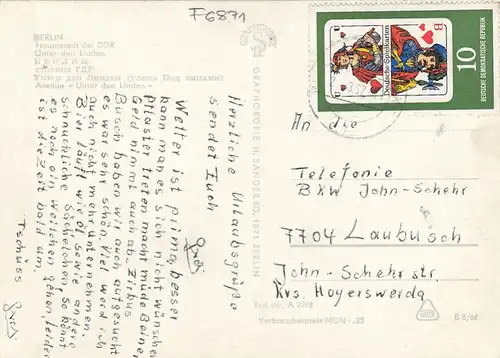 F6871
BERLIN
Hauptstadt der DDR
Unter den Linden
БЕРЛИН
столица ГДР
Унтер ден Линден (улица Под липами)
Avenue «Unter den Linden»
Herzliche Urlaubsgrüße
sendet Euch
Wetter ist prima, besser
kann man es sich nicht wünschen
Pflaster treten macht müde Beine,
Geld nimmt auch ab. Zirkus
Busch haben wir auch aufgesucht
es war sehr schön. Viel werd ich
auch nicht mehr unternehmen.
Bier läuft wie Öl sowie andere
schnauchliche Sächelchen, so könnt
es noch ein weilchen gehen, leider
ist die Zeit bald um.
Tschüss
GRAPHOKOPIE H. SANDER KG, 1071 BERLIN
Deutsche Spielkarten
B
DEUTSCHE DEMOKRATISCHE REPUBLIK
10
An die
Telefonie
BKW John-Schehr
7704 Laubusch
John-Schehr str.
Krs. Hoyerswerda
Verbraucherpreis MDN -,25
B 8/66